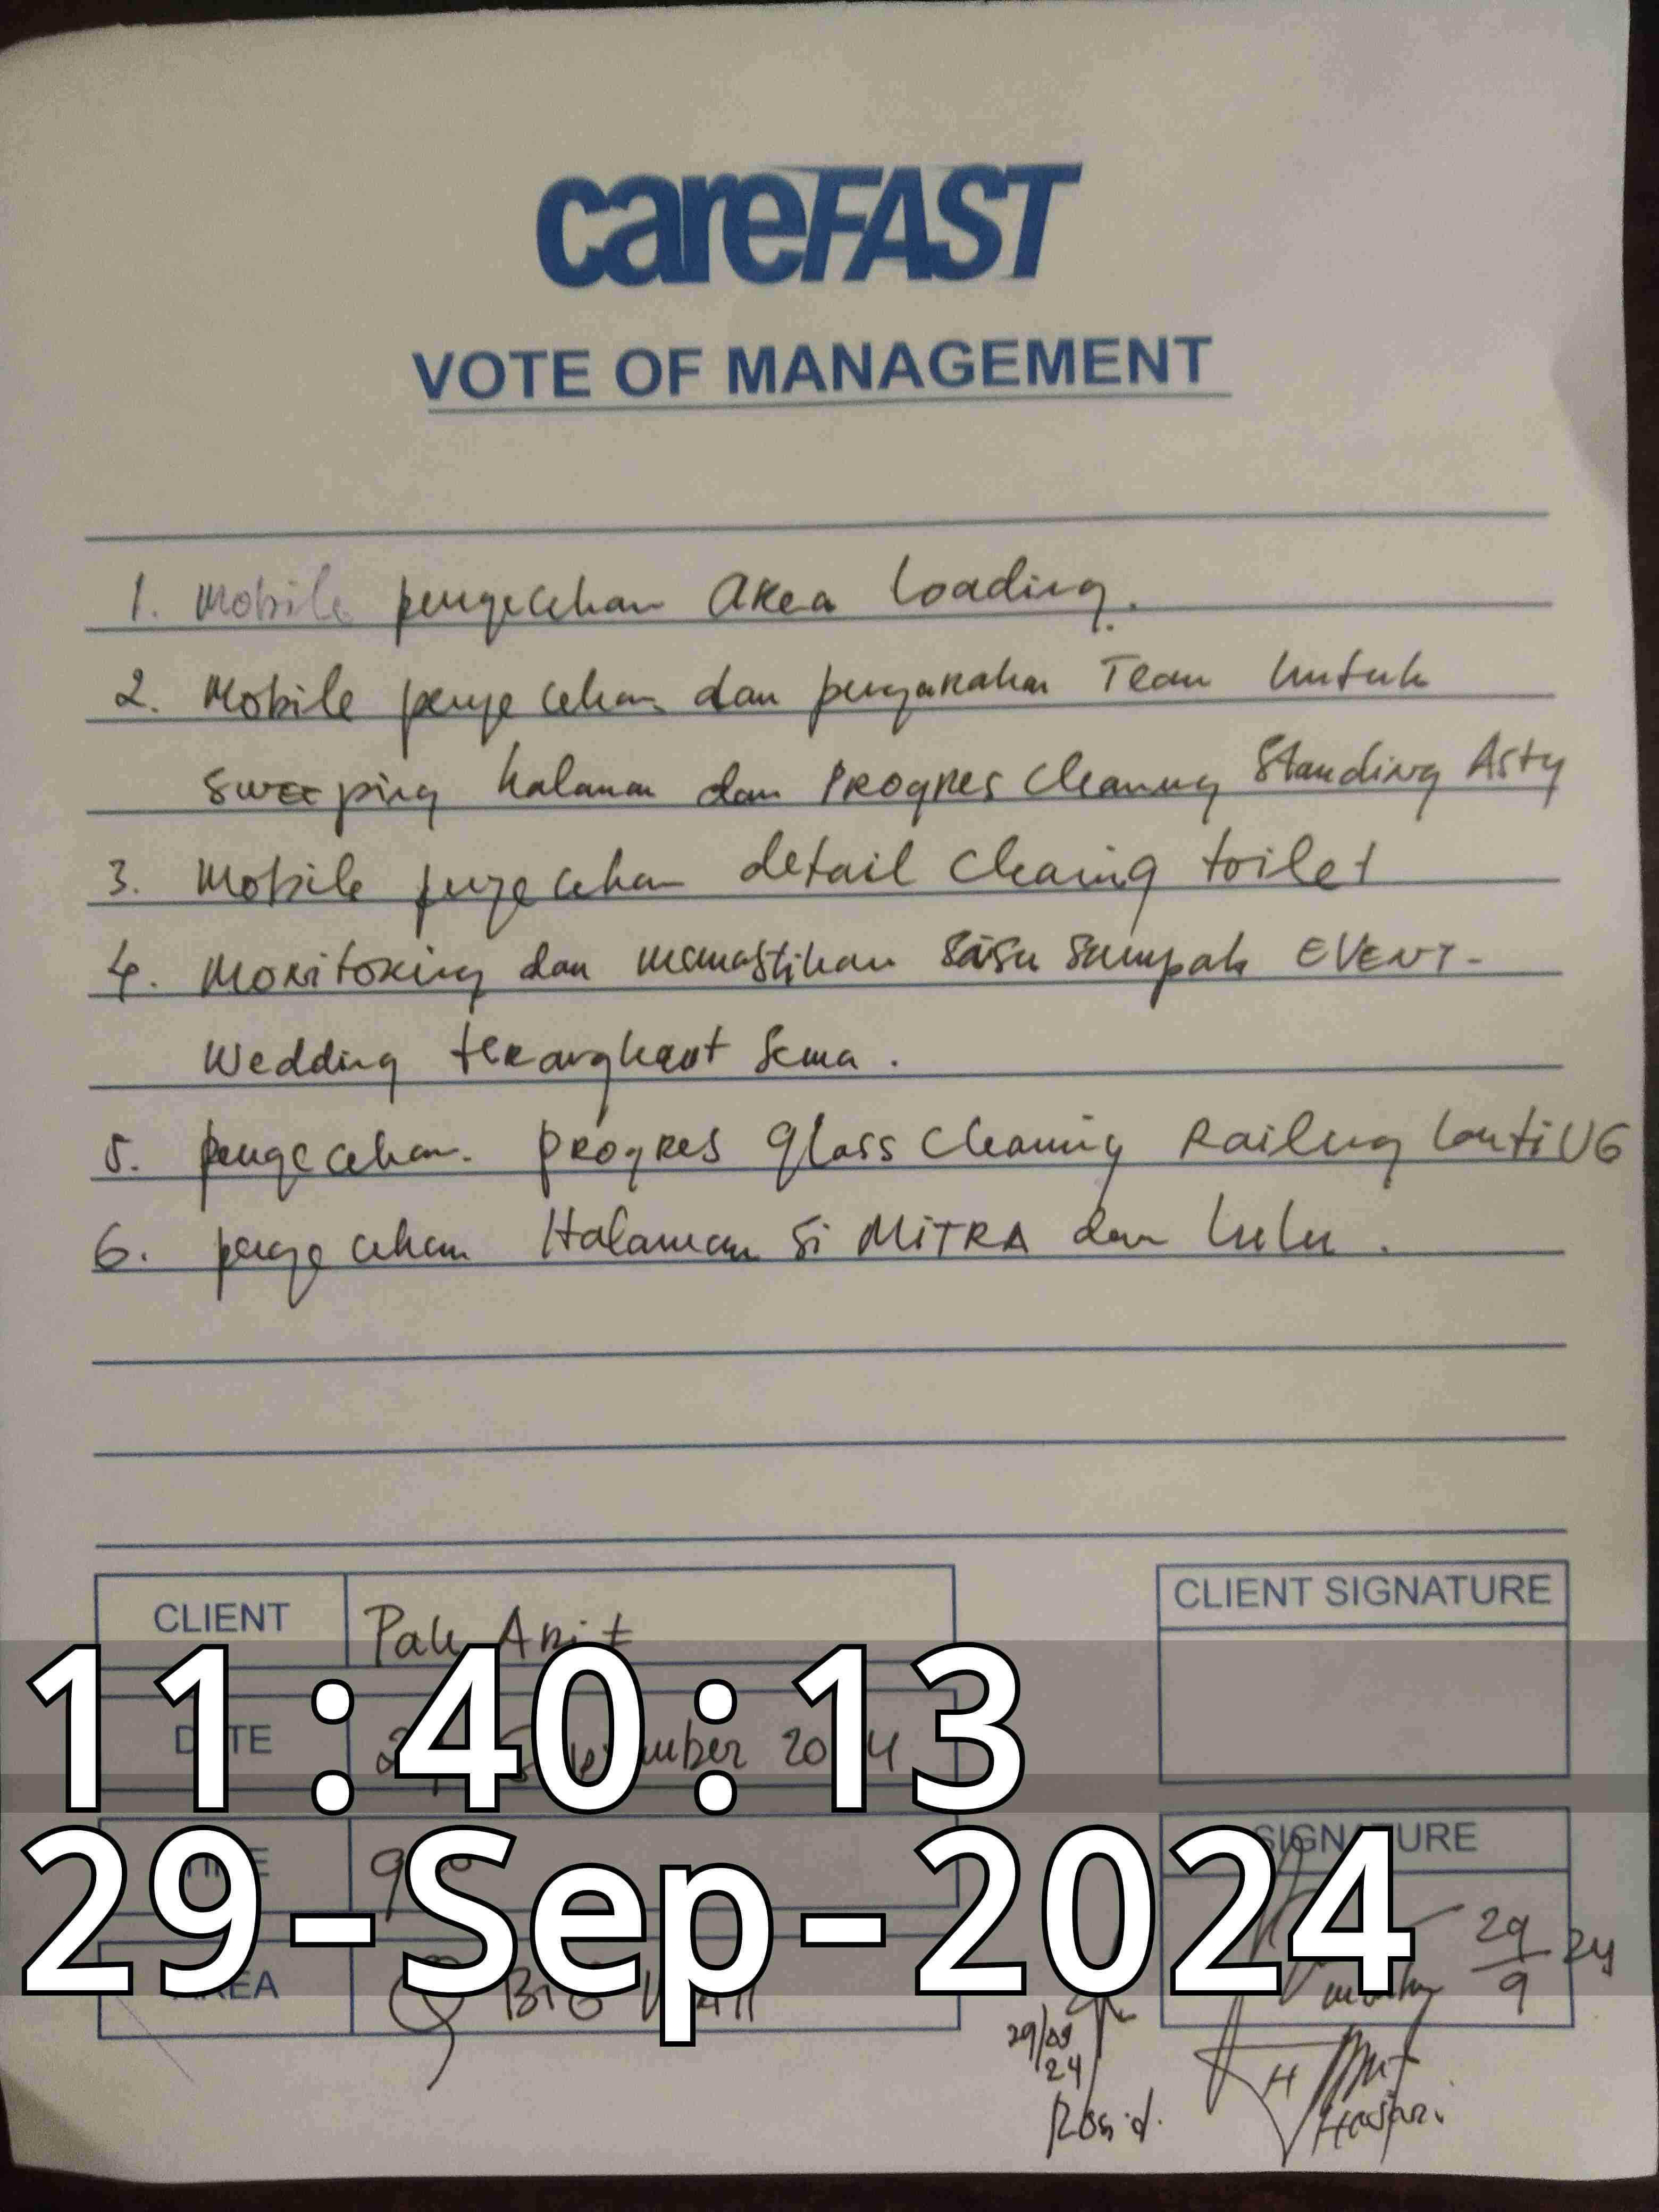 careFAST
VOTE OF MANAGEMENT
1. Mobile pengecekan Area Loading.
2. Mobile pengecekan dan pengarahan Team Untuk
sweeping halaman dan Progres Cleaning Standing Asty
3. Mobile pengecekan detail Cleaning toilet
4. Monitoring dan memastikan sampah EVENT-
Wedding terangkaut Semua.
5. pengecekan. progres glass Cleaning Railing lantiUG
6. pengecekan Halaman Si MITRA dan Lulu.
CLIENT Pak Arif
CLIENT SIGNATURE
11:40:13
DATE 2024
29-Sep-2024
SIGNATURE
AREA
29/9 24
29/09
24
Rosid.